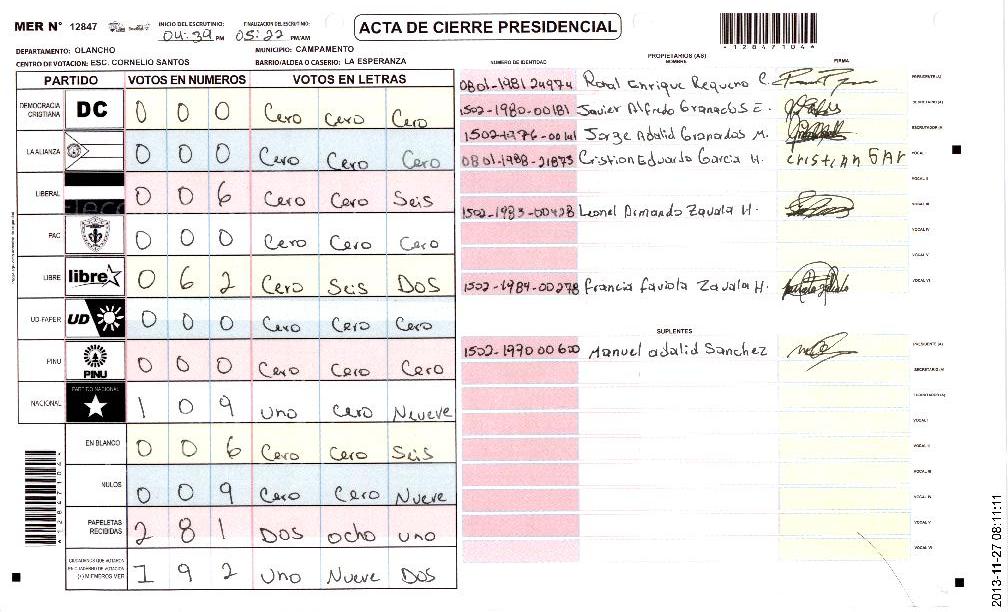 MER N° 12847 INICIO DEL ESCRUTINIO: 04:39 PM FINALIZACIÓN DEL ESCRUTINIO: 05:22 PM/AM ACTA DE CIERRE PRESIDENCIAL *12847104*
DEPARTAMENTO: OLANCHO MUNICIPIO: CAMPAMENTO
CENTRO DE VOTACION: ESC. CORNELIO SANTOS BARRIO/ALDEA O CASERIO: LA ESPERANZA
PARTIDO VOTOS EN NUMEROS VOTOS EN LETRAS
DEMOCRACIA CRISTIANA DC 0 0 0 Cero Cero Cero
LA ALIANZA 0 0 0 Cero Cero Cero
LIBERAL 0 0 6 Cero Cero Seis
PAC 0 0 0 Cero Cero Cero
LIBRE libre 0 6 2 Cero Seis DOS
UD-FAPER UD 0 0 0 Cero Cero Cero
PINU PINU 0 0 0 Cero Cero Cero
NACIONAL PARTIDO NACIONAL 1 0 9 Uno Cero Nueve
EN BLANCO 0 0 6 Cero Cero Seis
NULOS 0 0 9 Cero Cero Nueve
PAPELETAS RECIBIDAS 2 8 1 DOS ocho uno
CIUDADANOS QUE VOTARON EN CUADERNO DE VOTACION (+) MIEMBROS MER 1 9 2 Uno Nueve DOS
*12847104*
PROPIETARIOS (AS)
NUMERO DE IDENTIDAD NOMBRE FIRMA
0801-1981 24974 Ronal Enrique Requeno C. PRESIDENTE (A)
1502-1980-00181 Javier Alfredo Granados E. SECRETARIO (A)
1502-1976-00141 Jorge Adalid Granados M. ESCRUTADOR (A)
0801-1988-21873 Cristian Eduardo Garcia H. cristian GAR VOCAL I
VOCAL II
1502-1983-00428 Leonel Armando Zavala H. VOCAL III
VOCAL IV
VOCAL V
1502-1984-00278 Francia faviola Zavala H. VOCAL VI
SUPLENTES
1502-1970 00600 Manuel adalid Sanchez PRESIDENTE (A)
SECRETARIO (A)
ESCRUTADOR (A)
VOCAL I
VOCAL II
VOCAL III
VOCAL IV
VOCAL V
VOCAL VI
2013-11-27 08:11:11